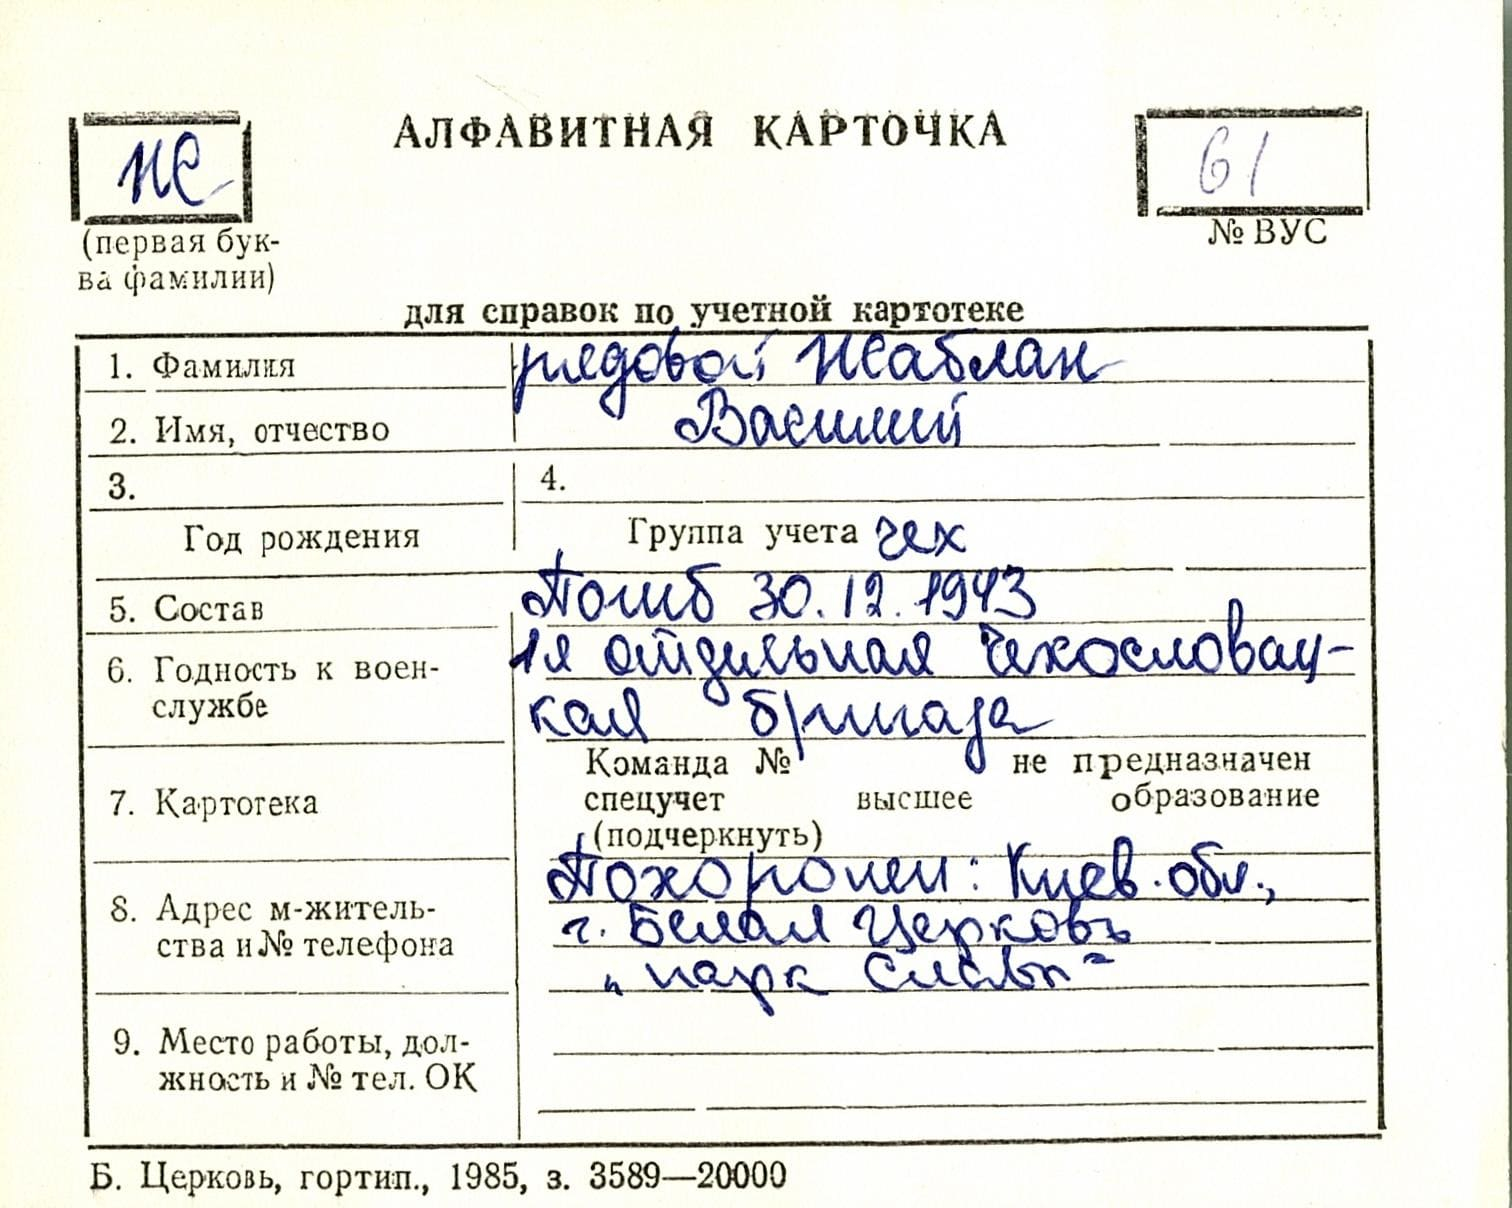 Ж
АЛФАВИТНАЯ КАРТОЧКА
61
(первая бук-
ва фамилии)
№ ВУС
для справок по учетной картотеке
1. Фамилия рядовой Жаблан
2. Имя, отчество Василий
3. 4.
Год рождения Группа учета чех
5. Состав Погиб 30.12.1943
6. Годность к воен- 1я отдельная Чехословац-
службе кая бригада
Команда № не предназначен
7. Картотека спецучет высшее образование
(подчеркнуть)
Похоронен: Киев. обл.,
8. Адрес м-житель- г. Белая Церковь
ства и № телефона „парк Славы"
9. Место работы, дол-
жность и № тел. ОК
Б. Церковь, гортип., 1985, з. 3589—20000